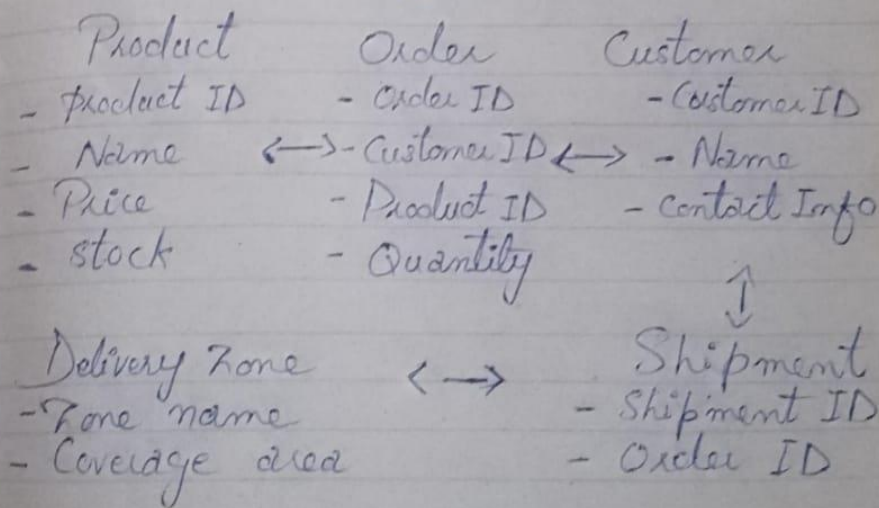 Product
- product ID
- Name
- Price
- stock
<-> 
Order
- Order ID
- Customer ID
- Product ID
- Quantity
<->
Customer
- Customer ID
- Name
- Contact Info
↕
Delivery Zone
- Zone name
- Coverage area
<->
Shipment
- Shipment ID
- Order ID